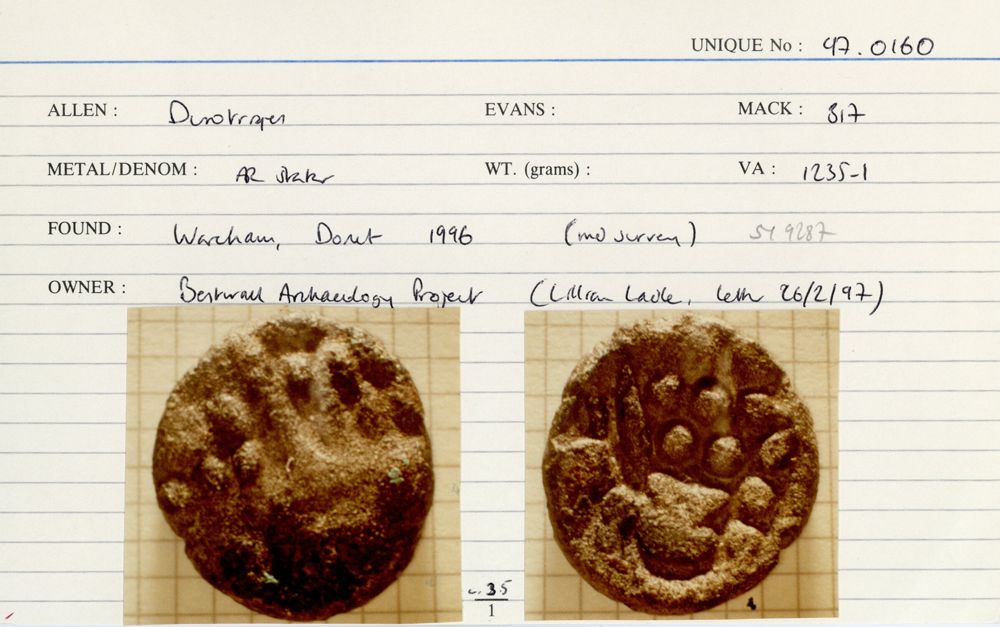 UNIQUE No : 97.0160
ALLEN : Durotriges EVANS : MACK : 317
METAL/DENOM : AR stater WT. (grams) : VA : 1235-1
FOUND : Wareham, Dorset 1996 (md survey) SY 9287
OWNER : Bestwall Archaeology Project (Lilian Ladle, letter 26/2/97)
c. 3.5
1